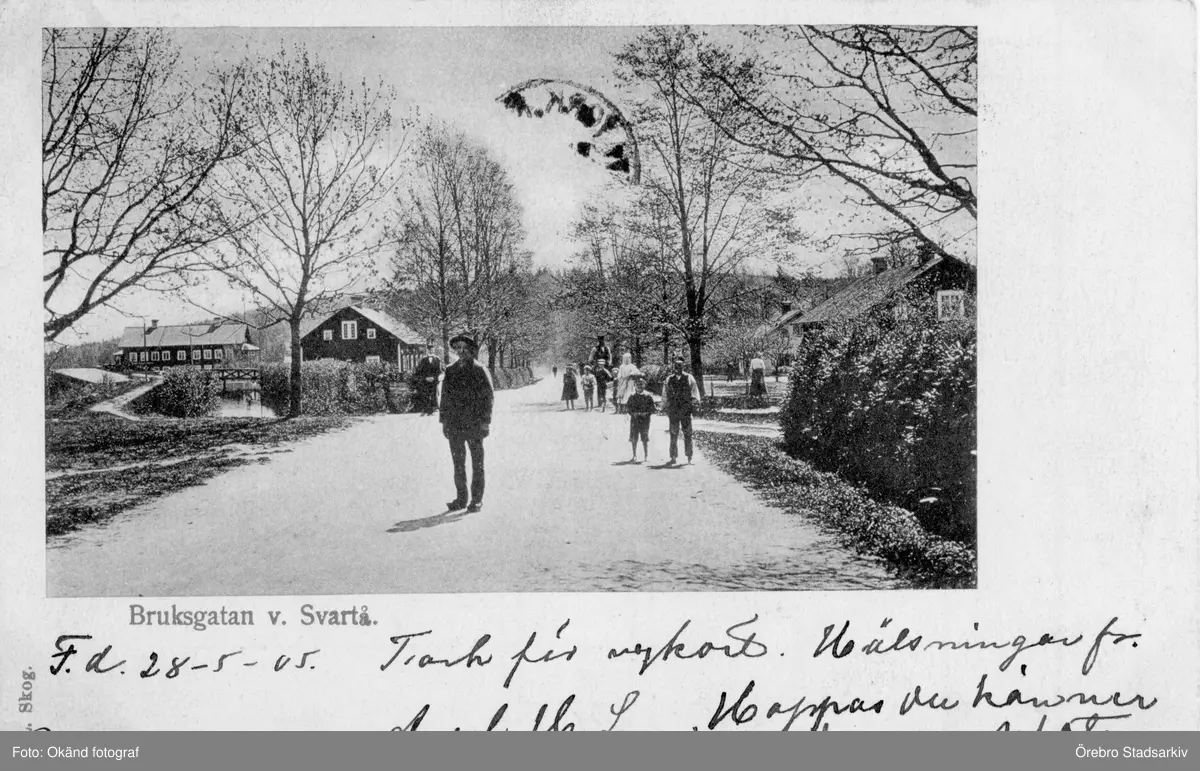 Bruksgatan v. Svartå.
F.d. 28-5-05. Tack för vykort. Hälsningar fr.
Hoppas du känner
Skog.
Foto: Okänd fotograf
Örebro Stadsarkiv